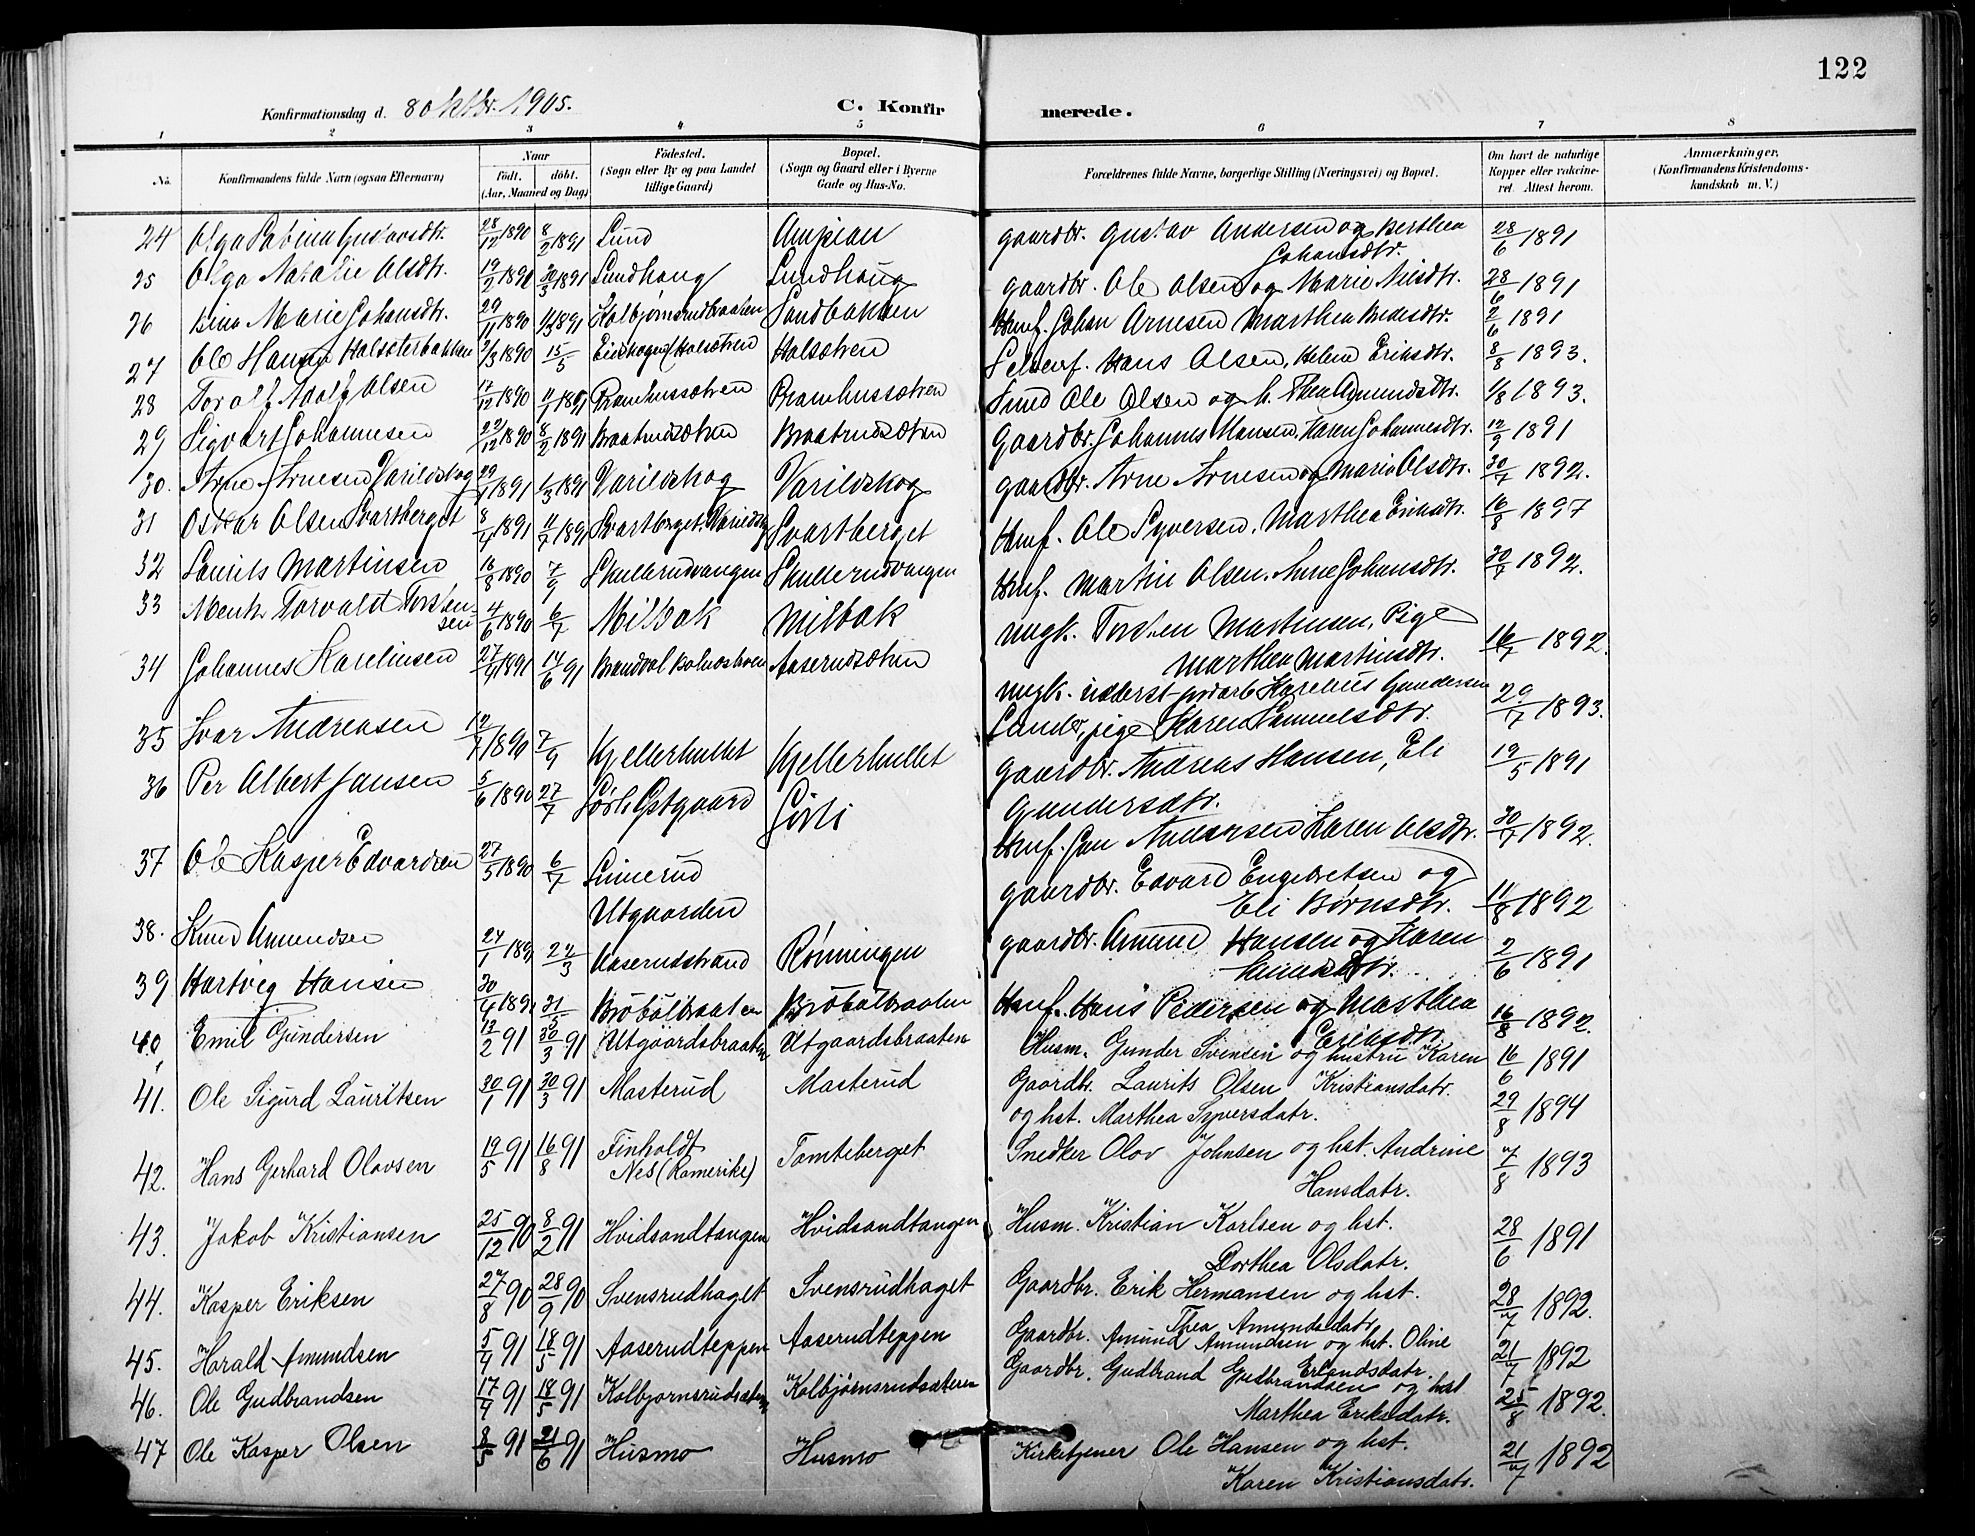 122
Konfirmationsdag d. 8 Oktbr. 1905. C. Konfirmerede.
1 2 3 4 5 6 7 8
No. Konfirmandens fulde Navn (ogsaa Efternavn) Naar födt. döbt. (Aar, Maaned og Dag) Födested. (Sogn eller By og paa Landet tillige Gaard) Bopæl. (Sogn og Gaard eller i Byerne Gade og Hus-No. Forældrenes fulde Navne, borgerlige Stilling (Næringsvei) og Bopæl. Om havt de naturlige Kopper eller vakcineret. Attest herom. Anmærkninger. (Konfirmandens Kristendomskundskab m. V.)
24 Olga Sabina Gustavsdtr. 28/12 1890 8/2 1891 Lund Ampian gaardbr. Gustav Andersen og Berthea Johansdtr. 28/6 1891
25 Olga Natalie Olsdtr. 19/2 1890 30/3 1891 Lundhaug Lundhaug gaardbr. Ole Olsen og Marie Nilsdtr. 28/6 1891
26 Lina Marie Johansdtr. 29/11 1890 1/3 1891 Kolbjørnsrudbraaten Sandbakken Husmf. Johan Arnesen Marthea 2/6 1891
27 Ole Hansen Halsæterbakken 2/3 1890 15/5 Halsætren Halsætren Hans Olsen, Helene Eriksdtr. 8/8 1893.
28 Toralf Adolf Olsen 17/12 1890 1891 Pramhussætren Pramhussætren Smed Ole Olsen og h. Thea Amundsdtr. 1/8 1893.
29 Sigvart Johannesen 22/12 1890 8/2 1891 Braatrudsætren Braatrudsætren Gaardbr. Johannes Hansen, Karen Johannesdtr. 12/9 1891
30. Arne Arnesen Varildskog 29/1 1891 1/3 1891 Varildskog Varildskog gaardbr. Arne Arnesen og Marie Olsdtr. 30/7 1892.
31 Oskar Olsen Svartberget 8/4 1891 1891 Svartberget, Varildskog Svartberget Husmf. Ole Syversen, Marthea Eriksdtr. 16/8 1897
32 Laurits Martinsen 16/8 1890 7/9 Skullerudvangen Skullerudvangen Husmf. Martin Olsen, Anne Johansdtr. 30/7 1892.
33 Menk Torvald Torstensen 4/6 1890 6/7 Milbak Milbak ungk. Torsten Martinsen, Pige Marthea Martinsdtr. 16/7 1892.
34 Johannes Karelinsen 27/4 1891 14/6 91 Brandval Aaserudsætren ungk. Karelius Gundersen Sander, pige Karen Samuelsdtr. 29/7 1893.
35 Ivar Andreasen 12/7 1890 7/9 Kjellerhullet Kjellerhullet gaardbr. Andreas Hansen, Eli Gundersdtr. 19/5 1891
36 Per Albert Jansen 5/6 1890 27/7 Sørli Østgaard Sørli Husmf. Jan Andersen Karen Olsdtr. 30/7 1892.
37 Ole Kasper Edvardsen 27/5 1890 6/7 Linnerud Utgaarden gaardbr. Edvard Engebretsen og Eli Børnsdtr. 11/8 1892
38. Knud Amundsen 24/1 22/3 Aaserudstrand Rønningen gaardbr. Amund Hansen og Karen 2/6 1891
39 Hartvig Hansen 30/4 31/5 Brøbølbraaten Brøbølbraaten Husmf. Hans Pedersen og Marthea Eriksdtr. 16/8 1892.
40 Emil Gundersen 13/2 91 30/3 91 Utgaardsbraaten Utgaardsbraaten Husm. Gunder Svensen og hustru Karen Kristiansdatr. 16/6 1891
41. Ole Sigurd Lauritsen 30/1 91 30/3 91 Masterud Masterud Gaardbr. Laurits Olsen og hst. Marthea Syversdatr. 29/8 1894
42. Hans Gerhard Olovsen 19/5 91 16/8 91 Finholdt Nes (Romerike) Tomteberget Snedker Olov Johnsen og hst. Andrine Hansdatr. 7/8 1893
43. Jakob Kristiansen 25/12 90 8/2 91 Hvidsandtangen Hvidsandtangen Husm. Kristian Karlsen og hst. Dorthea Olsdatr. 28/6 1891
44. Kasper Eriksen 27/8 90 28/9 90 Svensrudhaget Svensrudhaget Gaardbr. Erik Hermansen og hst. Thea Amundsdatr. 28/7 1892.
45. Harald Amundsen 5/4 91 18/5 91 Aaserudteppen Aaserudteppen Gaardbr. Amund Amundsen og hst. Oline Erlandsdatr. 21/7 1892
46. Ole Gudbrandsen 17/4 91 18/5 91 Kolbjørnsrudsæteren Kolbjørnsrudsæteren Gaardbr. Gudbrand Gudbrandsen og hst Marthea Eriksdatr. 25/8 1892.
47 Ole Kasper Olsen 8/5 91 21/6 91 Husmo Husmo Kirketjener Ole Hansen og hst. Karen Kristiansdatr. 21/7 1892